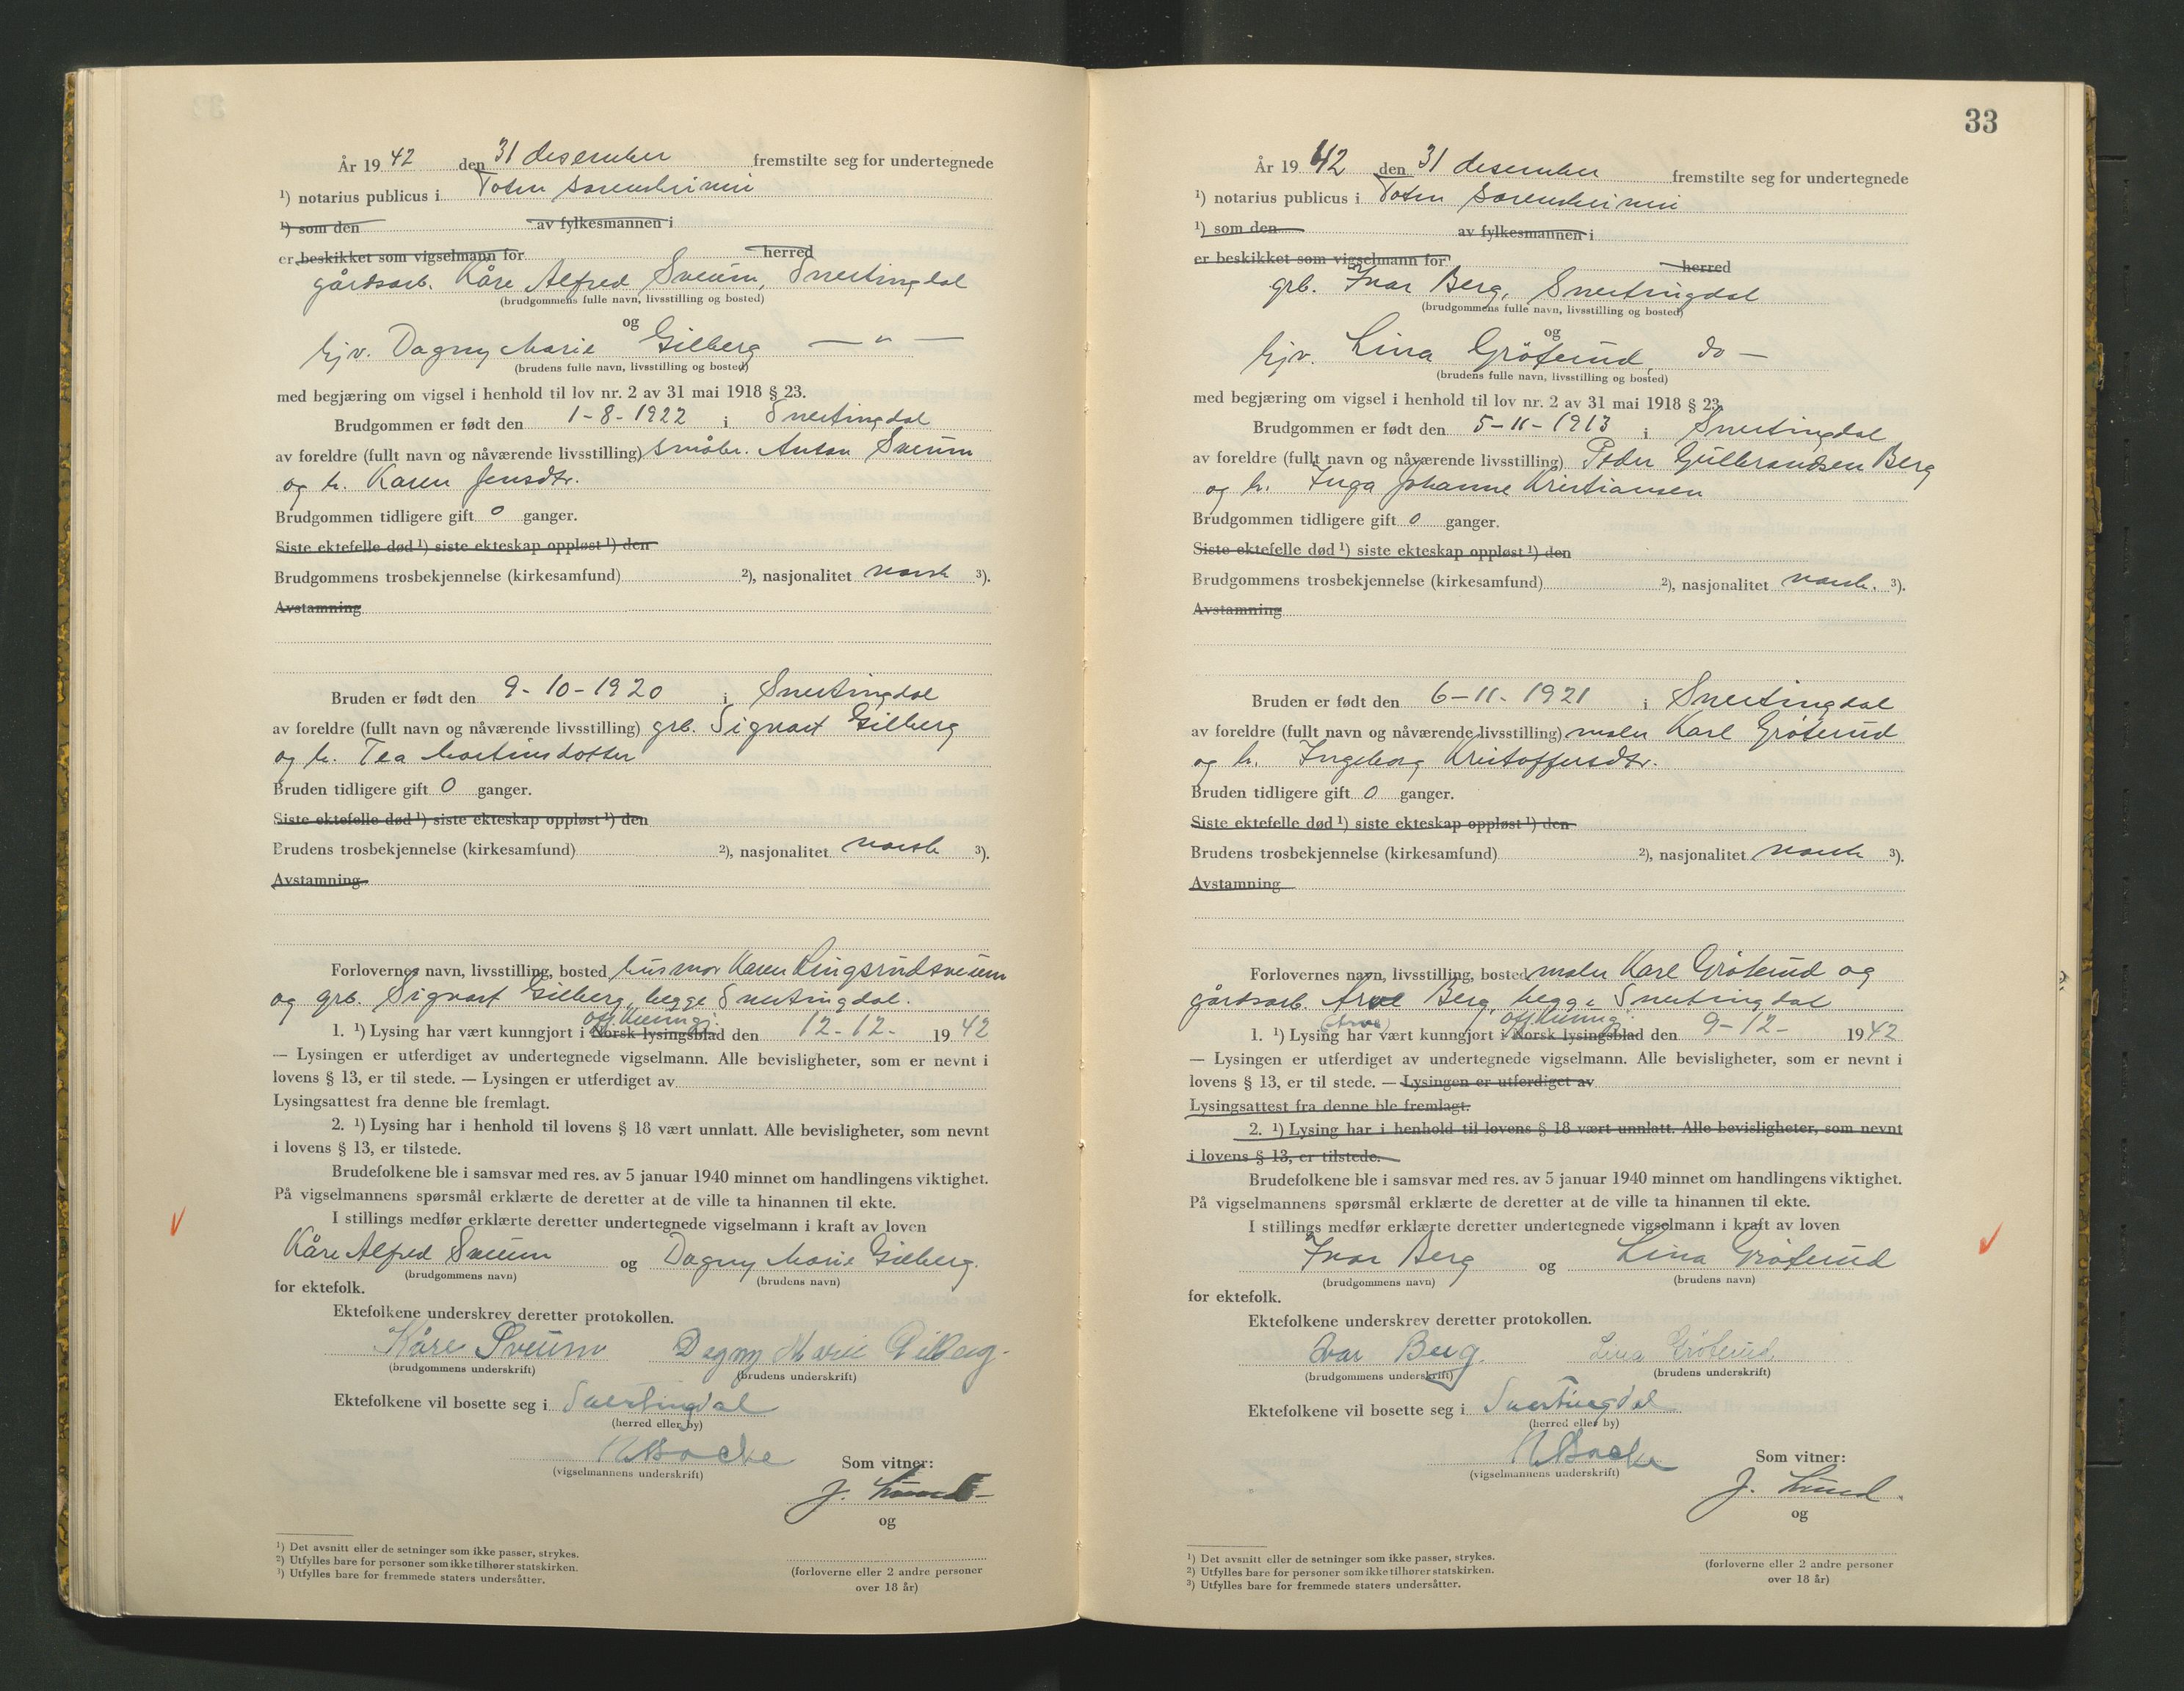 År 19 42 den 31 desember fremstilte seg for undertegnede
¹) notarius publicus i Toten sorenskriveri
¹) som den av fylkesmannen i
er beskikket som vigselmann for herred
gårdsarb. Kåre Alfred Sveum, Snertingdal
(brudgommens fulle navn, livsstilling og bosted)
og
hjv. Dagny Marie Gilberg — " —
(brudens fulle navn, livsstilling og bosted)
med begjæring om vigsel i henhold til lov nr. 2 av 31 mai 1918 § 23.
Brudgommen er født den 1-8-1922 i Snertingdal
av foreldre (fullt navn og nåværende livsstilling) småbr. Anton Sveum
og h. Karen Jensdtr.
Brudgommen tidligere gift 0 ganger.
Siste ektefelle død ¹) siste ekteskap oppløst ¹) den
Brudgommens trosbekjennelse (kirkesamfund) ²), nasjonalitet norsk ³).
Avstamning
Bruden er født den 9-10-1920 i Snertingdal
av foreldre (fullt navn og nåværende livsstilling) grb. Sigvart Gilberg
og h. Tea Martinsdotter
Bruden tidligere gift 0 ganger.
Siste ektefelle død ¹) siste ekteskap oppløst ¹) den
Brudens trosbekjennelse (kirkesamfund) ²), nasjonalitet norsk ³).
Avstamning
Forlovernes navn, livsstilling, bosted husmor Karen Ringsrudsveum
og grb. Sigvart Gilberg, begge Snertingdal.
off. kunngj.
1. ¹) Lysing har vært kunngjort i Norsk lysingsblad den 12-12- 19 42
— Lysingen er utferdiget av undertegnede vigselmann. Alle bevisligheter, som er nevnt i
lovens § 13, er til stede. — Lysingen er utferdiget av
Lysingsattest fra denne ble fremlagt.
2. ¹) Lysing har i henhold til lovens § 18 vært unnlatt. Alle bevisligheter, som nevnt
i lovens § 13, er tilstede.
Brudefolkene ble i samsvar med res. av 5 januar 1940 minnet om handlingens viktighet.
På vigselmannens spørsmål erklærte de deretter at de ville ta hinannen til ekte.
I stillings medfør erklærte deretter undertegnede vigselmann i kraft av loven
Kåre Alfred Sveum og Dagny Marie Gilberg.
(brudgommens navn) (brudens navn)
for ektefolk.
Ektefolkene underskrev deretter protokollen.
Kåre Sveum Dagny Marie Gilberg.
(brudgommens underskrift) (brudens underskrift)
Ektefolkene vil bosette seg i Snertingdal
(herred eller by)
(vigselmannens underskrift) Som vitner:
J. Lund
og
¹) Det avsnitt eller de setninger som ikke passer, strykes.
²) Utfylles bare for personer som ikke tilhører statskirken.
³) Utfylles bare for fremmede staters undersåtter.
(forloverne eller 2 andre personer
over 18 år)
33
År 19 42 den 31 desember fremstilte seg for undertegnede
¹) notarius publicus i Toten sorenskriveri
¹) som den av fylkesmannen i
er beskikket som vigselmann for herred
grb. Ivar Berg, Snertingdal
(brudgommens fulle navn, livsstilling og bosted)
og
hjv. Lina Grøterud, do —
(brudens fulle navn, livsstilling og bosted)
med begjæring om vigsel i henhold til lov nr. 2 av 31 mai 1918 § 23.
Brudgommen er født den 5-11-1913 i Snertingdal
av foreldre (fullt navn og nåværende livsstilling) Peder Gulbrandsen Berg
og h. Inga Johanne Kristiansen
Brudgommen tidligere gift 0 ganger.
Siste ektefelle død ¹) siste ekteskap oppløst ¹) den
Brudgommens trosbekjennelse (kirkesamfund) ²), nasjonalitet norsk. ³).
Avstamning
Bruden er født den 6-11-1921 i Snertingdal
av foreldre (fullt navn og nåværende livsstilling) maler Karl Grøterud
og h. Ingeborg Kristoffersdtr.
Bruden tidligere gift 0 ganger.
Siste ektefelle død ¹) siste ekteskap oppløst ¹) den
Brudens trosbekjennelse (kirkesamfund) ²), nasjonalitet norsk ³).
Avstamning
Forlovernes navn, livsstilling, bosted maler Karl Grøterud og
gårdsarb. Arve Berg, begge Snertingdal
(Arve) off. kunngj.
1. ¹) Lysing har vært kunngjort i Norsk lysingsblad den 9-12- 19 42
— Lysingen er utferdiget av undertegnede vigselmann. Alle bevisligheter, som er nevnt i
lovens § 13, er til stede. — Lysingen er utferdiget av
Lysingsattest fra denne ble fremlagt.
2. ¹) Lysing har i henhold til lovens § 18 vært unnlatt. Alle bevisligheter, som nevnt
i lovens § 13, er tilstede.
Brudefolkene ble i samsvar med res. av 5 januar 1940 minnet om handlingens viktighet.
På vigselmannens spørsmål erklærte de deretter at de ville ta hinannen til ekte.
I stillings medfør erklærte deretter undertegnede vigselmann i kraft av loven
Ivar Berg og Lina Grøterud
(brudgommens navn) (brudens navn)
for ektefolk.
Ektefolkene underskrev deretter protokollen.
Ivar Berg. Lina Grøterud.
(brudgommens underskrift) (brudens underskrift)
Ektefolkene vil bosette seg i Snertingdal
(herred eller by)
(vigselmannens underskrift) Som vitner:
J. Lund.
og
¹) Det avsnitt eller de setninger som ikke passer, strykes.
²) Utfylles bare for personer som ikke tilhører statskirken.
³) Utfylles bare for fremmede staters undersåtter.
(forloverne eller 2 andre personer
over 18 år)